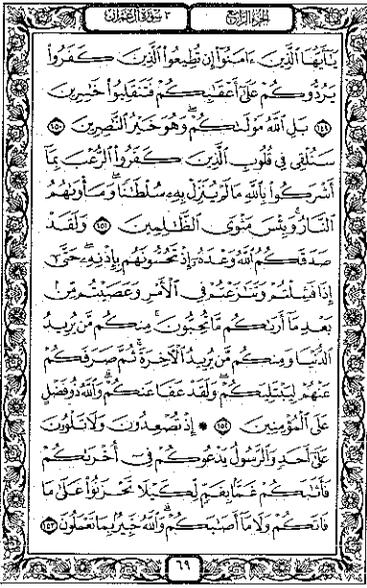 الجزء الرابع ٣ سورة آل عمران
يَٰٓأَيُّهَا ٱلَّذِينَ ءَامَنُوٓا۟ إِن تُطِيعُوا۟ ٱلَّذِينَ كَفَرُوا۟
يَرُدُّوكُمْ عَلَىٰٓ أَعْقَٰبِكُمْ فَتَنقَلِبُوا۟ خَٰسِرِينَ
١٤٩ بَلِ ٱللَّهُ مَوْلَىٰكُمْ ۖ وَهُوَ خَيْرُ ٱلنَّٰصِرِينَ ١٥٠
سَنُلْقِى فِى قُلُوبِ ٱلَّذِينَ كَفَرُوا۟ ٱلرُّعْبَ بِمَآ
أَشْرَكُوا۟ بِٱللَّهِ مَا لَمْ يُنَزِّلْ بِهِۦ سُلْطَٰنًا ۖ وَمَأْوَىٰهُمُ
ٱلنَّارُ ۚ وَبِئْسَ مَثْوَى ٱلظَّٰلِمِينَ ١٥١ وَلَقَدْ
صَدَقَكُمُ ٱللَّهُ وَعْدَهُۥٓ إِذْ تَحُسُّونَهُم بِإِذْنِهِۦ ۖ حَتَّىٰٓ
إِذَا فَشِلْتُمْ وَتَنَٰزَعْتُمْ فِى ٱلْأَمْرِ وَعَصَيْتُم مِّنۢ
بَعْدِ مَآ أَرَىٰكُم مَّا تُحِبُّونَ ۚ مِنكُم مَّن يُرِيدُ
ٱلدُّنْيَا وَمِنكُم مَّن يُرِيدُ ٱلْءَاخِرَةَ ۚ ثُمَّ صَرَفَكُمْ
عَنْهُمْ لِيَبْتَلِيَكُمْ ۖ وَلَقَدْ عَفَا عَنكُمْ ۗ وَٱللَّهُ ذُو فَضْلٍ
عَلَى ٱلْمُؤْمِنِينَ ١٥٢ ۞ إِذْ تُصْعِدُونَ وَلَا تَلْوُۥنَ
عَلَىٰٓ أَحَدٍ وَٱلرَّسُولُ يَدْعُوكُمْ فِىٓ أُخْرَىٰكُمْ
فَأَثَٰبَكُمْ غَمًّۢا بِغَمٍّ لِّكَيْلَا تَحْزَنُوا۟ عَلَىٰ مَا
فَاتَكُمْ وَلَا مَآ أَصَٰبَكُمْ ۗ وَٱللَّهُ خَبِيرٌۢ بِمَا تَعْمَلُونَ ١٥٣
٦٩